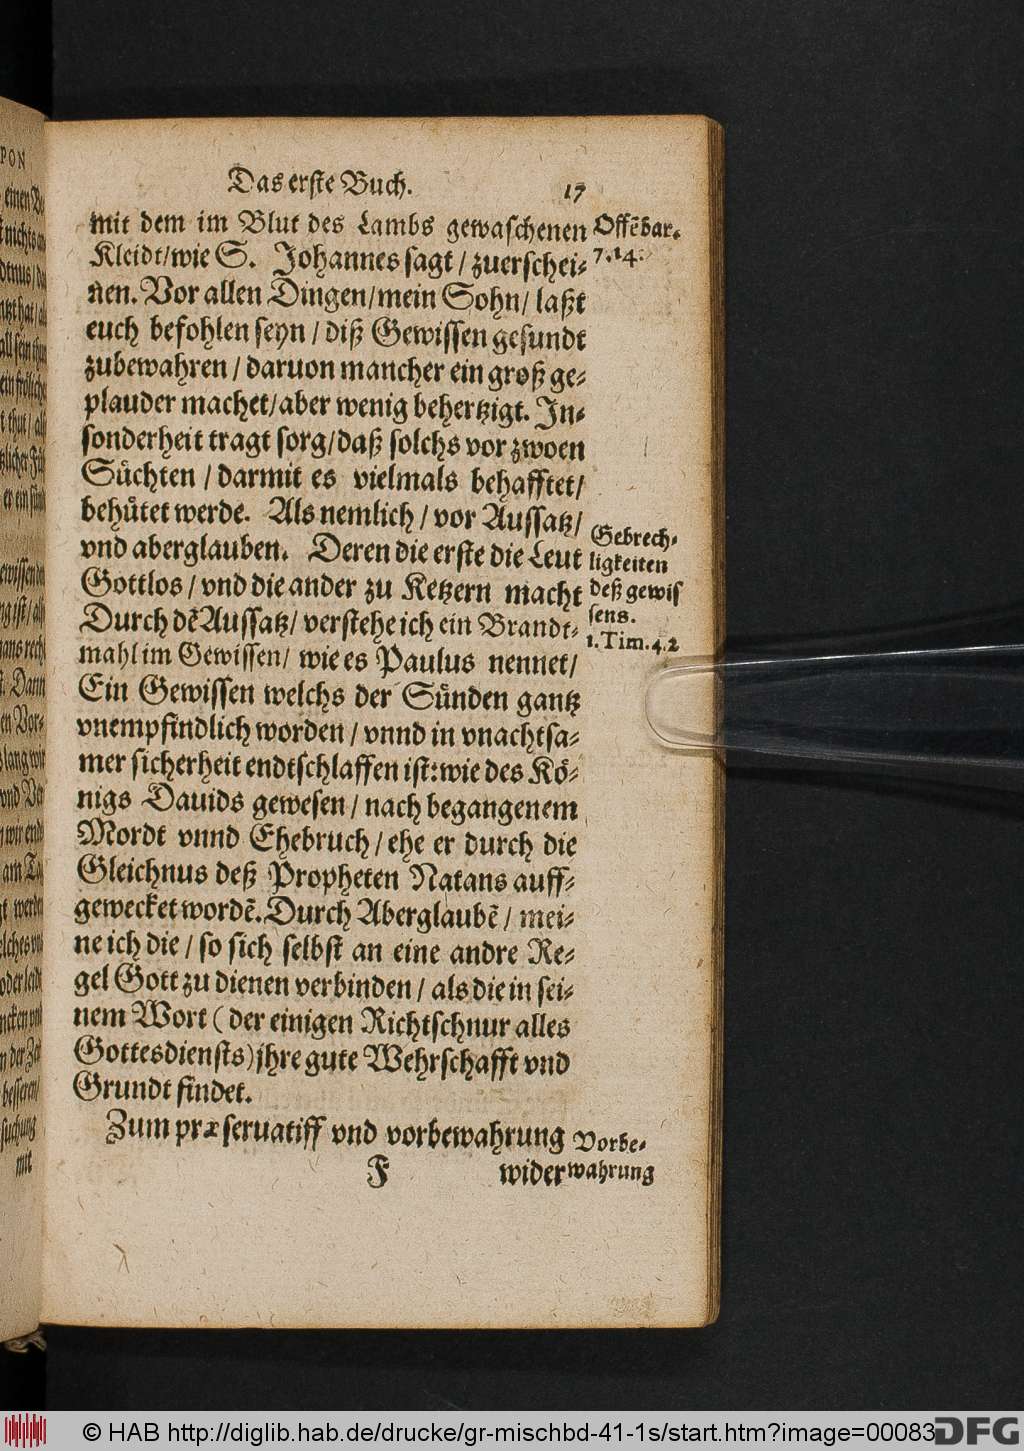 Das erste Buch. 17
mit dem im Blut des Lambs gewaschenen
Kleidt/wie S. Johannes sagt/zuerschei-
nen. Vor allen Dingen/mein Sohn/laßt
euch befohlen seyn/diß Gewissen gesundt
zubewahren/daruon mancher ein groß ge-
plauder machet/aber wenig behertzigt. In-
sonderheit tragt sorg/daß solchs vor zwoen
Süchten/darmit es vielmals behafftet/
behütet werde. Als nemlich/vor Aussatz/
vnd aberglauben. Deren die erste die Leut
Gottlos/vnd die ander zu Ketzern macht
Durch dẽ Aussatz/verstehe ich ein Brandt-
mahl im Gewissen/wie es Paulus nennet/
Ein Gewissen welchs der Sünden gantz
vnempfindlich worden/vnnd in vnachtsa-
mer sicherheit endtschlaffen ist: wie des Kö-
nigs Dauids gewesen/nach begangenem
Mordt vnnd Ehebruch/ehe er durch die
Gleichnus deß Propheten Natans auff-
gewecket wordẽ. Durch Aberglaubẽ/mei-
ne ich die/so sich selbst an eine andre Re-
gel Gott zu dienen verbinden/als die in sei-
nem Wort (der einigen Richtschnur alles
Gottesdiensts) jhre gute Wehrschafft vnd
Grundt findet.
Zum præseruatiff vnd vorbewahrung
F wider
Offẽbar.
7.14.
Gebrech-
ligkeiten
deß gewis
sens.
1. Tim. 4.2
Vorbe-
wahrung
PON
mit
© HAB http://diglib.hab.de/drucke/gr-mischbd-41-1s/start.htm?image=00083
DFG